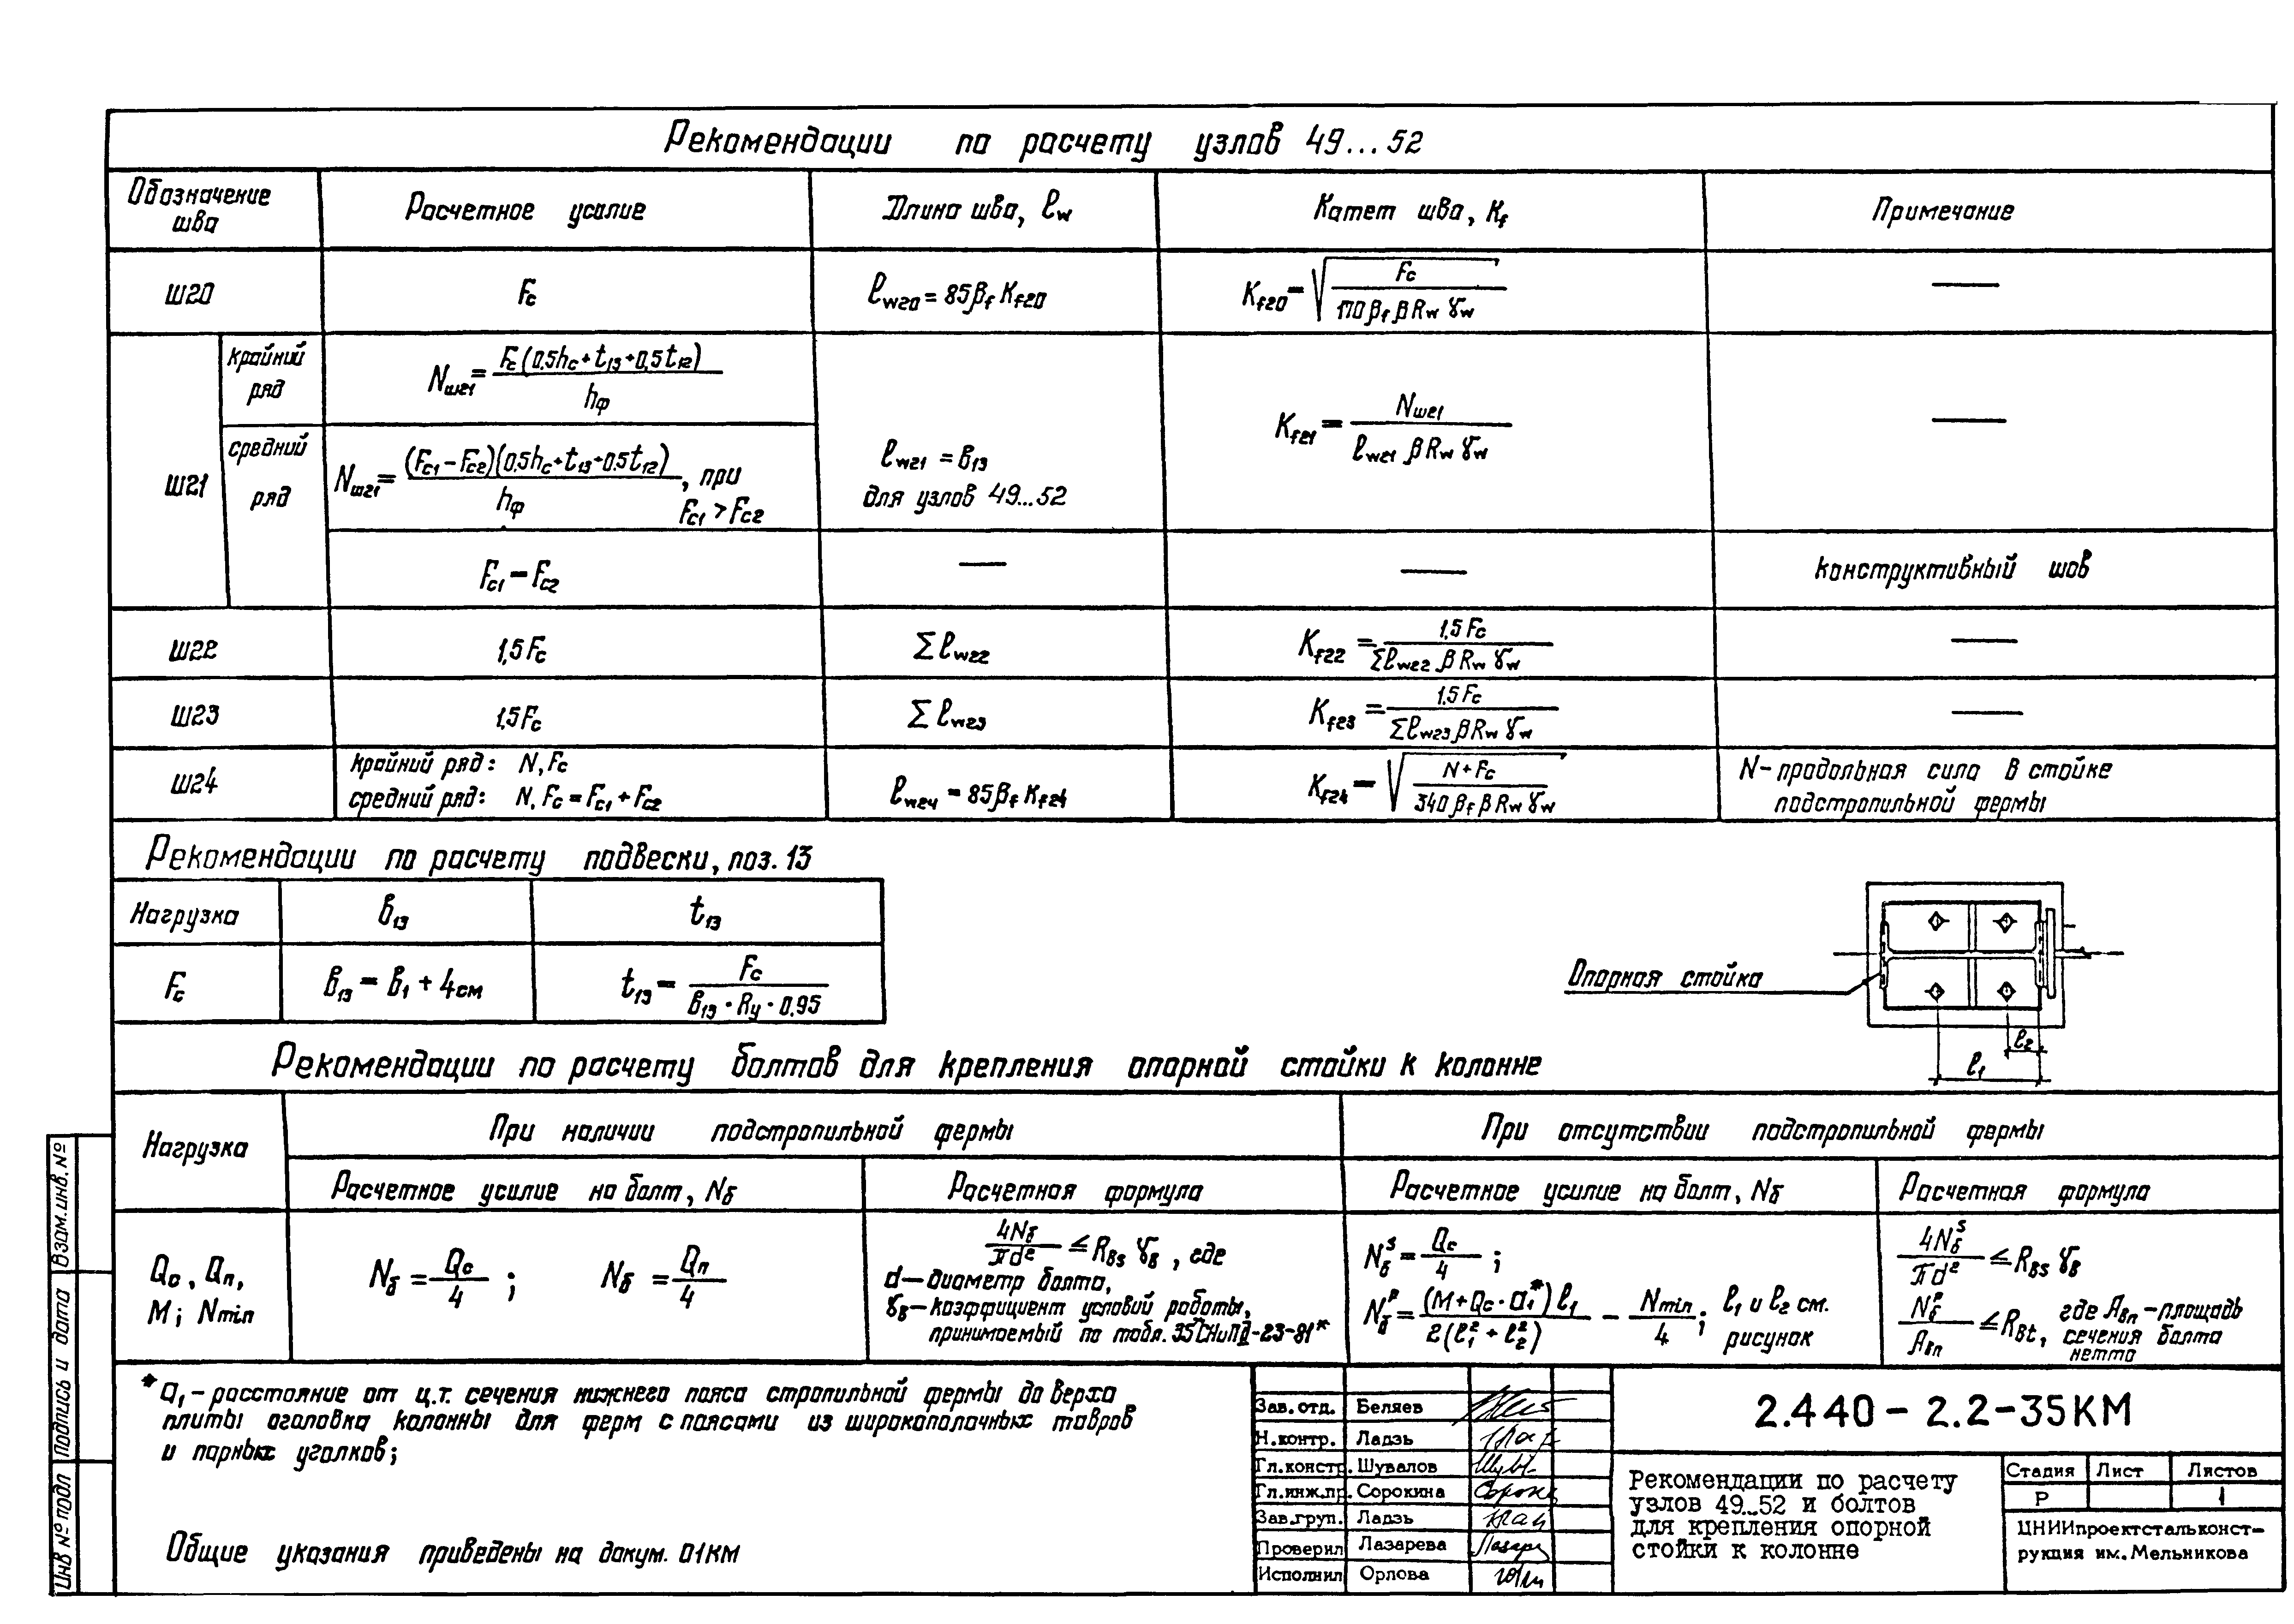 Рекомендации по расчету узлов 49...52
Обозначение шва
Расчетное усилие
Длина шва, ℓw
Катет шва, Kf
Примечание
Ш20
Fc
ℓw20 = 85βf Kf20
Kf20 = √(Fc / (170 βf β Rw γw))
—
Ш21
крайний ряд
Nш21 = Fc(0.5hc + t13 + 0,5t12) / hф
средний ряд
Nш21 = (Fc1 − Fc2)(0.5hc + t13 + 0.5t12) / hф, при Fc1 > Fc2
ℓw21 = в13
для узлов 49...52
Kf21 = Nш21 / (ℓw21 β Rw γw)
—
Fc1 − Fc2
—
—
Конструктивный шов
Ш22
1,5 Fc
Σℓw22
Kf22 = 1,5 Fc / (Σℓw22 β Rw γw)
—
Ш23
1,5 Fc
Σℓw23
Kf23 = 1,5 Fc / (Σℓw23 β Rw γw)
—
Ш24
Крайний ряд: N, Fc
средний ряд: N, Fc = Fc1 + Fc2
ℓw24 = 85βf Kf24
Kf24 = √((N + Fc) / (340 βf β Rw γw))
N - продольная сила в стойке
подстропильной фермы
Рекомендации по расчету подвески, поз. 13
Нагрузка
в13
t13
Fc
в13 = в1 + 4см
t13 = Fc / (в13 · Ry · 0.95)
Опорная стойка
ℓ2
ℓ1
Рекомендации по расчету болтов для крепления опорной стойки к колонне
Нагрузка
При наличии подстропильной фермы
При отсутствии подстропильной фермы
Расчетное усилие на болт, Nб
Расчетная формула
Расчетное усилие на болт, Nб
Расчетная формула
Qc, Qп,
M; Nmin
Nб = Qc / 4 ; Nб = Qп / 4
4Nб / πd² ≤ RBs γB, где
d — диаметр болта,
γB — коэффициент условий работы,
принимаемый по табл. 35 СНиП II-23-81*
Nбˢ = Qc / 4 ;
Nбᴾ = (M + Qc · a1*) ℓ1 / 2(ℓ1² + ℓ2²) − Nmin / 4 ; ℓ1 и ℓ2 см.
рисунок
4Nбˢ / πd² ≤ RBs γB
Nбᴾ / ABп ≤ RBt, где ABп - площадь
сечения болта
нетто
* a1 - расстояние от ц.т. сечения нижнего пояса стропильной фермы до верха
плиты оголовка колонны для ферм с поясами из широкополочных тавров
и парных уголков;
Общие указания приведены на докум. 01КМ
Взам. инв. №
Подпись и дата
Инв № подл
Зав. отд. Беляев
Н. контр. Ладзь
Гл. констр. Шувалов
Гл. инж. пр. Сорокина
Зав. груп. Ладзь
Проверил Лазарева
Исполнил Орлова
2.440 - 2.2-35КМ
Рекомендации по расчету
узлов 49...52 и болтов
для крепления опорной
стойки к колонне
Стадия Лист Листов
Р 1
ЦНИИпроектстальконст-
рукция им. Мельникова